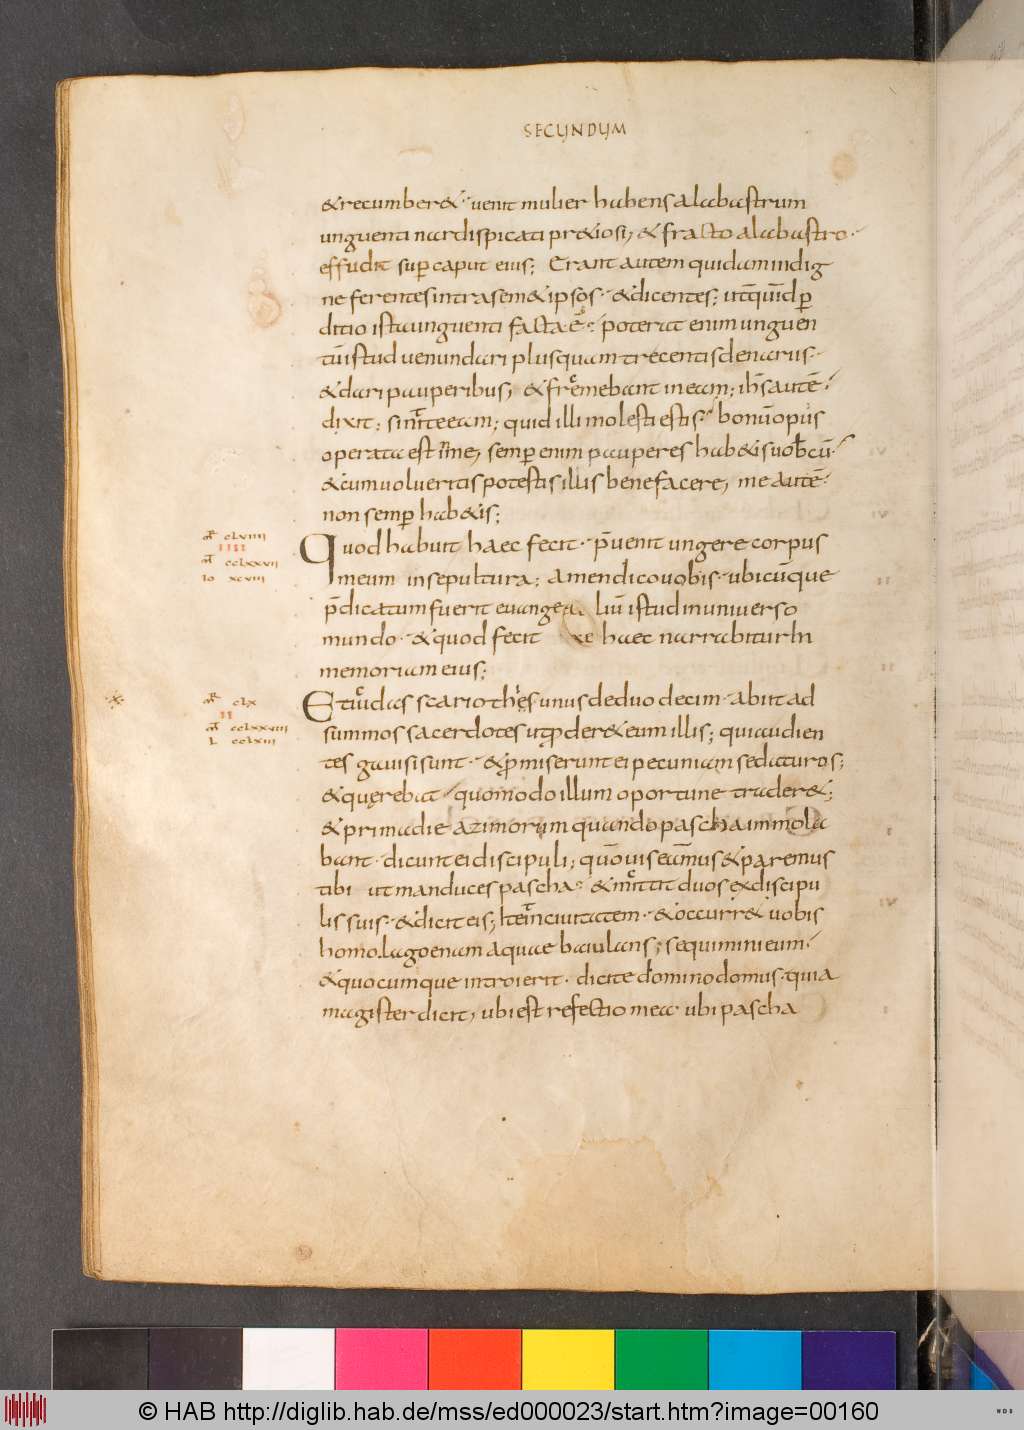 SECUNDUM
& recumber& · uenit mulier habens alabastrum
unguenti nardi spicati pr&iosi, & fracto alabastro ·
effudit sup caput eius; Erant autem quidam indig
ne ferentes intra sem&ipsos · & dicentes; utqd p
ditio ista unguenti facta ē; poterat enim unguen
tū istud uenundari plus quam trecentis denariis ·
& dari pauperibus; & fremebant in eam; ihs autē
dixit; sinite eam; quid illi molesti estis bonū opus
operata est in me; semp enim pauperes hab&is uobcū
& cum uolueritis potestis illis bene facere, me autē
non semp hab&is;
mr clviiii
Quod habuit haec fecit · p̄uenit ungere corpus
IIII
mt cclxxvii
meum in sepultura; amen dico uobis · ubicūque
io xcviii
p̄dicatum fuerit euange liū istud in uniuerso
mundo · & quod fecit haec narrabitur In
memoriam eius;
mr clx
Et iudas scariothes unus de duodecim · abiit ad
II
mt cclxxviii
summos sacerdotes ut pder& eum illis; qui audien
L cclxiii
tes gauisi sunt · & pmiserunt ei pecuniam se daturos;
& quęrebat quomodo illum oportune trader&;
& prima die azimorum quando pascha immola
bant · dicunt ei discipuli; quō uis eamus & paremus
tibi ut manduces pascha · & mittit duos ex discipu
lis suis · & dicit eis; Ite in ciuitatem · & occurr& uobis
homo lagoenam aquae baiulans; sequimini eum
& quocumque introierit · dicite domino domus · quia
magister dicit, ubi est refectio mea ubi pascha
© HAB http://diglib.hab.de/mss/ed000023/start.htm?image=00160